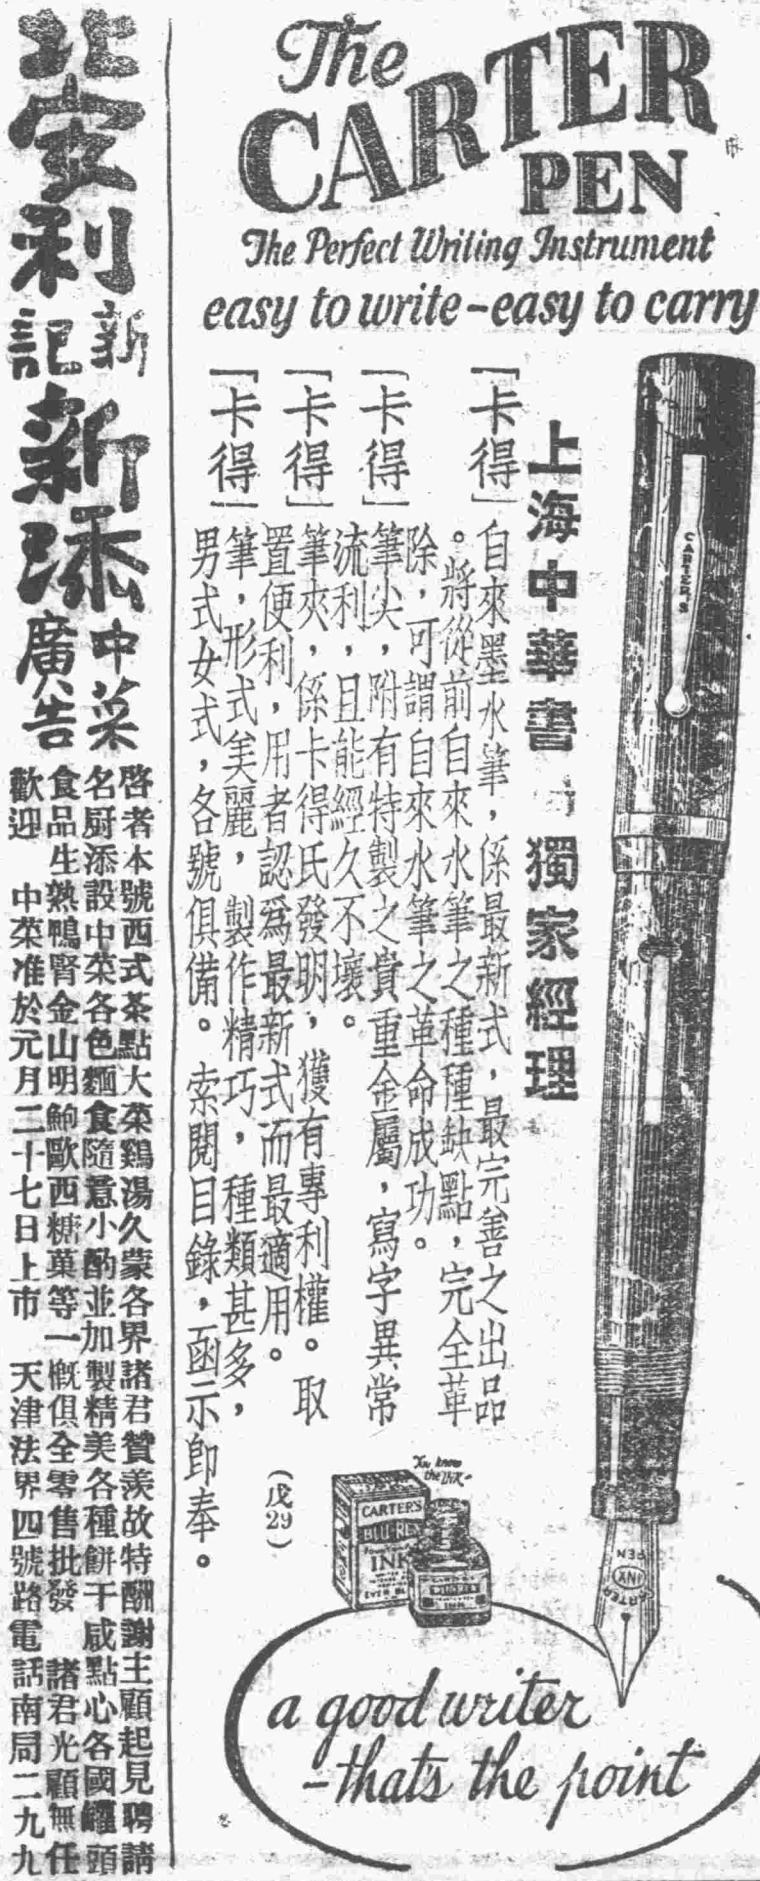 The
CARTER
PEN
The Perfect Writing Instrument
easy to write-easy to carry
上海中華書 獨家經理
「卡得」自來墨水筆，係最新式，最完善之出品
。將從前自來水筆之種種缺點，完全革
除，可謂自來水筆之革命成功。
「卡得」筆尖，附有特製之貴重金屬，寫字異常
流利，且能經久不壞。
「卡得」筆夾，係卡得氏發明，獲有專利權。取
置便利，用者認爲最新式而最適用。
「卡得」筆，形式美麗，製作精巧，種類甚多，
男式女式，各號俱備。索閱目錄，函示卽奉。
(戊29)
CARTER'S
You know
the ink-
CARTER'S
INK
INX
PEN
CARTER
a good writer
-that's the point
北安利
新記
新添
中菜
廣告
啓者本號西式茶點大菜鷄湯久蒙各界諸君贊羨故特酬謝主顧起見聘請
名厨添設中菜各色麵食隨意小酌並加製精美各種餅干咸點心各國罐頭
食品生熟鴨腎金山明鮑歐西糖菓等一槪俱全零售批發 諸君光顧無任
歡迎 中菜准於元月二十七日上市 天津法界四號路電話南局二九九